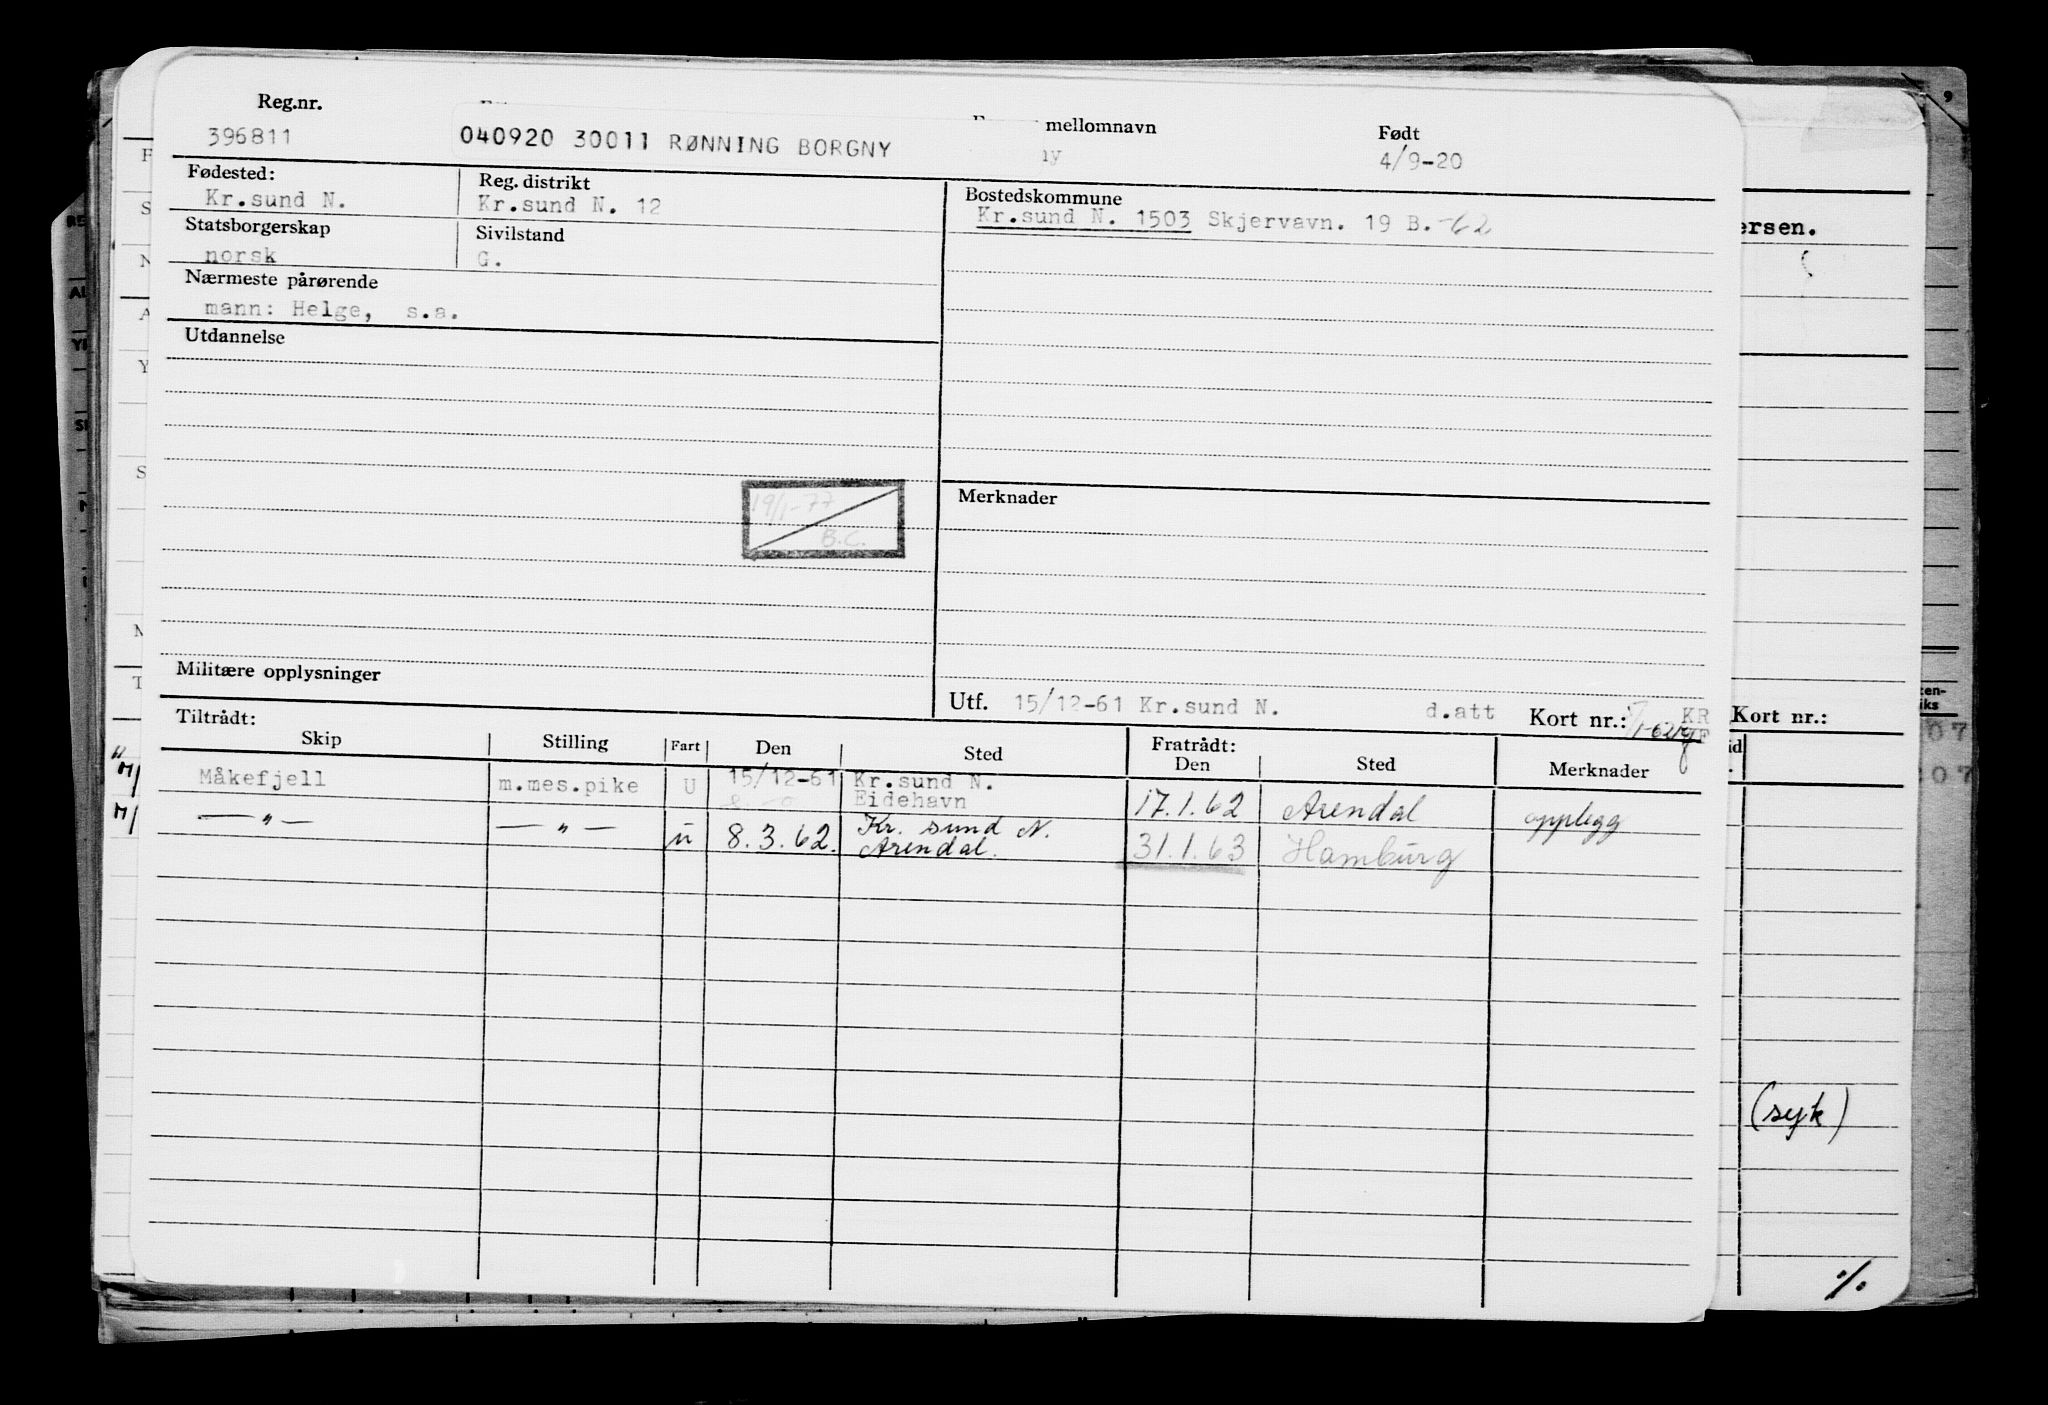 Reg.nr.
396811
040920 30011 RØNNING BORGNY
mellomnavn
ny
Født
4/9-20
Fødested:
Kr.sund N.
Reg. distrikt
Kr.sund N. 12
Bostedskommune
Kr.sund N. 1503 Skjervavn. 19 B. -62
Statsborgerskap
norsk
Sivilstand
G.
Nærmeste pårørende
mann: Helge, s.a.
Utdannelse
19/1-77
B.C.
Merknader
Militære opplysninger
Utf. 15/12-61 Kr.sund N. d.att Kort nr.: KR
Tiltrådt:
Skip Stilling Fart Den Sted
Fratrådt:
Den Sted Merknader
Måkefjell m.mes.pike U 15/12-61 Kr.sund N.
Eidehavn 17.1.62 Arendal opplegg
— " — — " — u 8.3.62. Kr. sund N.
Arendal. 31.1.63 Hamburg
ersen.
Kort nr.:
(syk)